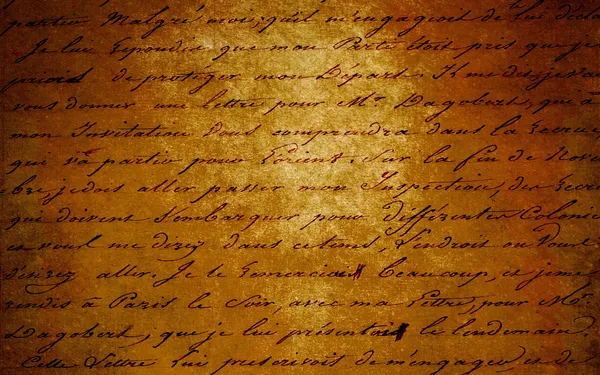 partir Malgré moi, qu'il m'engageoit de lui décla
Je lui Repondis que mon Parti étoit pris que je
priois de protéger mon Départ. Il me dit, je va
vous donner une lettre pour Mr. Dagobert, qui à
mon Invitation vous comprendra dans la Recrue
qui va partir pour Lorient. Sur la fin de Nove
bre, je dois aller passer mon Inspection, des Recr
qui doivent s'embarquer pour différentes Colonie
et vous me direz dans ce tems, l'endroit ou vous
désirez aller. Je le Remerciai beaucoup, et je me
rendis à Paris le Soir, avec ma Lettre, pour Mr.
Dagobert, que je lui présentai le lendemain.
Cette Lettre lui prescrivoit de m'engager et de